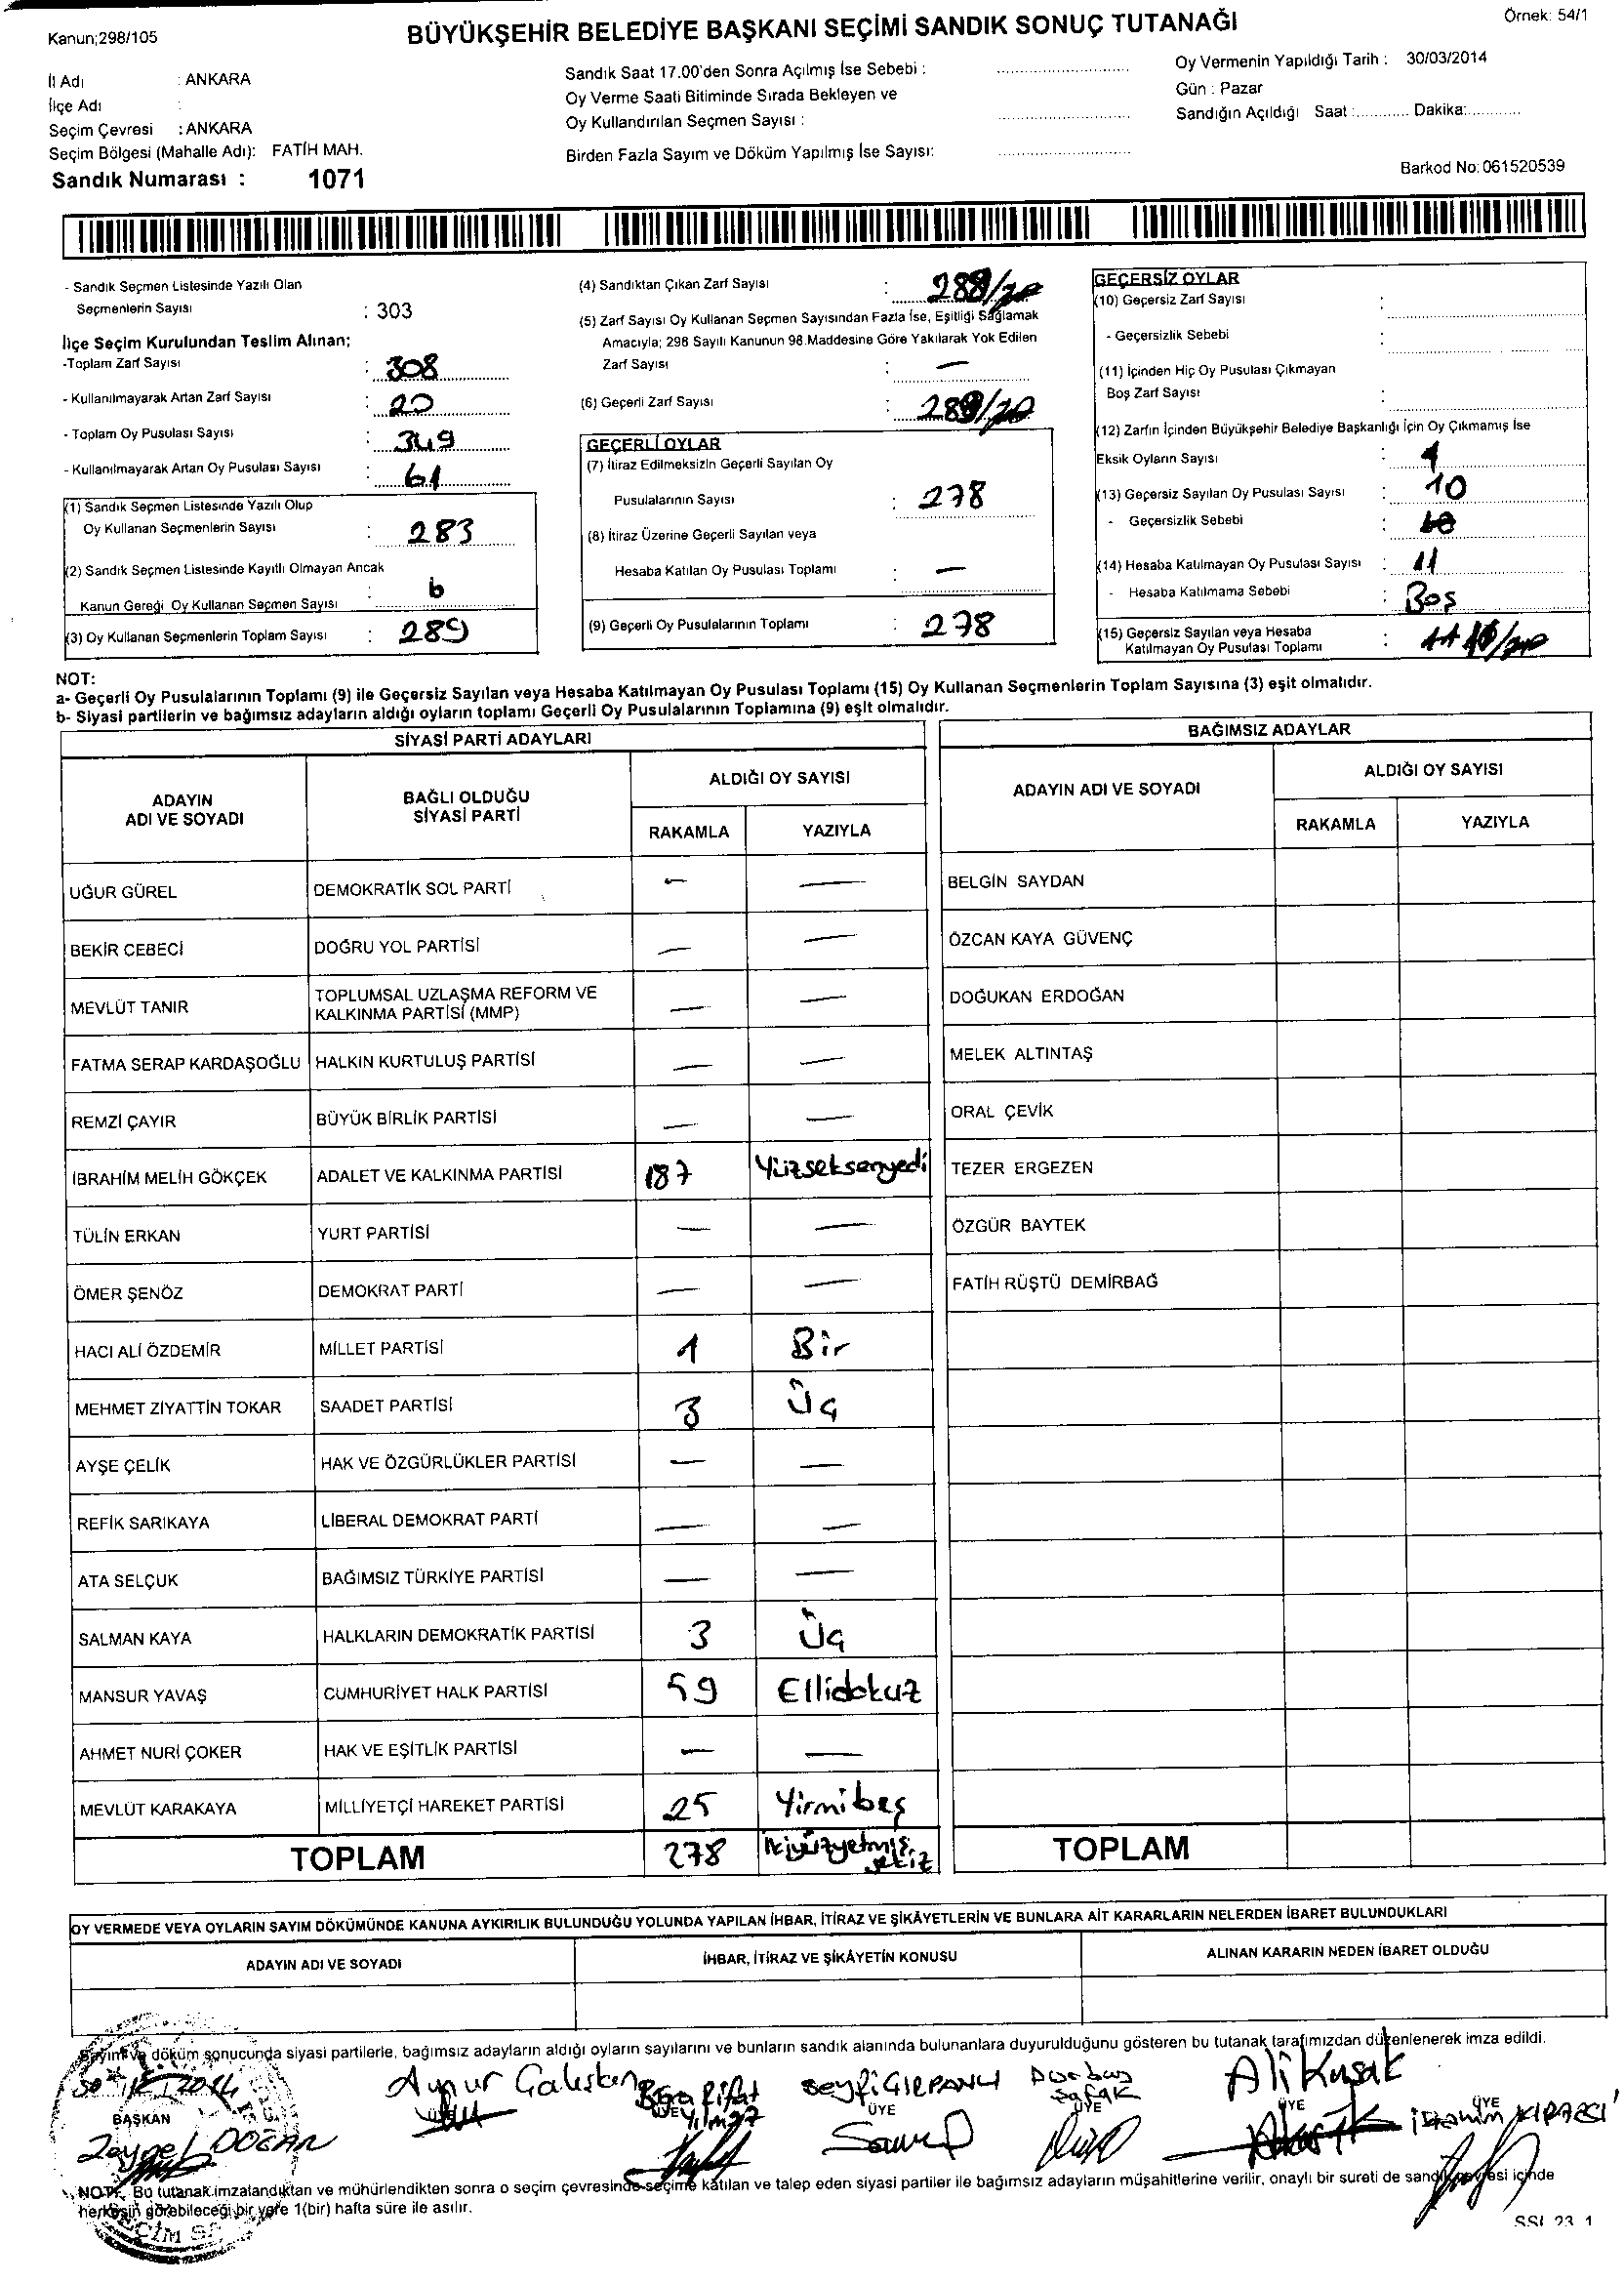 Kanun;298/105
BÜYÜKŞEHİR BELEDİYE BAŞKANI SEÇİMİ SANDIK SONUÇ TUTANAĞI
Örnek: 54/1
İl Adı : ANKARA
İlçe Adı :
Seçim Çevresi : ANKARA
Seçim Bölgesi (Mahalle Adı): FATİH MAH.
Sandık Numarası : 1071
Sandık Saat 17.00'den Sonra Açılmış İse Sebebi :
Oy Verme Saati Bitiminde Sırada Bekleyen ve
Oy Kullandırılan Seçmen Sayısı :
Birden Fazla Sayım ve Döküm Yapılmış İse Sayısı:
Oy Vermenin Yapıldığı Tarih : 30/03/2014
Gün : Pazar
Sandığın Açıldığı Saat :............ Dakika:............
Barkod No:061520539
- Sandık Seçmen Listesinde Yazılı Olan
Seçmenlerin Sayısı : 303
İlçe Seçim Kurulundan Teslim Alınan:
-Toplam Zarf Sayısı : 308
- Kullanılmayarak Artan Zarf Sayısı : 20
- Toplam Oy Pusulası Sayısı : 349
- Kullanılmayarak Artan Oy Pusulası Sayısı : 61
(1) Sandık Seçmen Listesinde Yazılı Olup
Oy Kullanan Seçmenlerin Sayısı : 283
(2) Sandık Seçmen Listesinde Kayıtlı Olmayan Ancak
Kanun Gereği Oy Kullanan Seçmen Sayısı : 6
(3) Oy Kullanan Seçmenlerin Toplam Sayısı : 289
(4) Sandıktan Çıkan Zarf Sayısı :
(5) Zarf Sayısı Oy Kullanan Seçmen Sayısından Fazla İse, Eşitliği Sağlamak
Amacıyla; 298 Sayılı Kanunun 98.Maddesine Göre Yakılarak Yok Edilen
Zarf Sayısı : —
(6) Geçerli Zarf Sayısı :
GEÇERLİ OYLAR
(7) İtiraz Edilmeksizin Geçerli Sayılan Oy
Pusulalarının Sayısı : 278
(8) İtiraz Üzerine Geçerli Sayılan veya
Hesaba Katılan Oy Pusulası Toplamı : —
(9) Geçerli Oy Pusulalarının Toplamı : 278
GEÇERSİZ OYLAR
(10) Geçersiz Zarf Sayısı :
- Geçersizlik Sebebi :
(11) İçinden Hiç Oy Pusulası Çıkmayan
Boş Zarf Sayısı :
(12) Zarfın İçinden Büyükşehir Belediye Başkanlığı İçin Oy Çıkmamış İse
Eksik Oyların Sayısı : 1
(13) Geçersiz Sayılan Oy Pusulası Sayısı : 10
- Geçersizlik Sebebi :
(14) Hesaba Katılmayan Oy Pusulası Sayısı : 11
- Hesaba Katılmama Sebebi : Boş
(15) Geçersiz Sayılan veya Hesaba
Katılmayan Oy Pusulası Toplamı : 11
NOT:
a- Geçerli Oy Pusulalarının Toplamı (9) ile Geçersiz Sayılan veya Hesaba Katılmayan Oy Pusulası Toplamı (15) Oy Kullanan Seçmenlerin Toplam Sayısına (3) eşit olmalıdır.
b- Siyasi partilerin ve bağımsız adayların aldığı oyların toplamı Geçerli Oy Pusulalarının Toplamına (9) eşit olmalıdır.
SİYASİ PARTİ ADAYLARI
ADAYIN ADI VE SOYADI BAĞLI OLDUĞU SİYASİ PARTİ ALDIĞI OY SAYISI
RAKAMLA YAZIYLA
UĞUR GÜREL DEMOKRATİK SOL PARTİ — —
BEKİR CEBECİ DOĞRU YOL PARTİSİ — —
MEVLÜT TANIR TOPLUMSAL UZLAŞMA REFORM VE KALKINMA PARTİSİ (MMP) — —
FATMA SERAP KARDAŞOĞLU HALKIN KURTULUŞ PARTİSİ — —
REMZİ ÇAYIR BÜYÜK BİRLİK PARTİSİ — —
İBRAHİM MELİH GÖKÇEK ADALET VE KALKINMA PARTİSİ 187 Yüzseksenyedi
TÜLİN ERKAN YURT PARTİSİ — —
ÖMER ŞENÖZ DEMOKRAT PARTİ — —
HACI ALİ ÖZDEMİR MİLLET PARTİSİ 1 Bir
MEHMET ZİYATTİN TOKAR SAADET PARTİSİ 3 Üç
AYŞE ÇELİK HAK VE ÖZGÜRLÜKLER PARTİSİ — —
REFİK SARIKAYA LİBERAL DEMOKRAT PARTİ — —
ATA SELÇUK BAĞIMSIZ TÜRKİYE PARTİSİ — —
SALMAN KAYA HALKLARIN DEMOKRATİK PARTİSİ 3 Üç
MANSUR YAVAŞ CUMHURİYET HALK PARTİSİ 59 Ellidokuz
AHMET NURİ ÇOKER HAK VE EŞİTLİK PARTİSİ — —
MEVLÜT KARAKAYA MİLLİYETÇİ HAREKET PARTİSİ 25 Yirmibeş
TOPLAM 278 İkiyüzyetmişsekiz
BAĞIMSIZ ADAYLAR
ADAYIN ADI VE SOYADI ALDIĞI OY SAYISI
RAKAMLA YAZIYLA
BELGİN SAYDAN
ÖZCAN KAYA GÜVENÇ
DOĞUKAN ERDOĞAN
MELEK ALTINTAŞ
ORAL ÇEVİK
TEZER ERGEZEN
ÖZGÜR BAYTEK
FATİH RÜŞTÜ DEMİRBAĞ
TOPLAM
OY VERMEDE VEYA OYLARIN SAYIM DÖKÜMÜNDE KANUNA AYKIRILIK BULUNDUĞU YOLUNDA YAPILAN İHBAR, İTİRAZ VE ŞİKÂYETLERİN VE BUNLARA AİT KARARLARIN NELERDEN İBARET BULUNDUKLARI
ADAYIN ADI VE SOYADI İHBAR, İTİRAZ VE ŞİKÂYETİN KONUSU ALINAN KARARIN NEDEN İBARET OLDUĞU
Sayım ve döküm sonucunda siyasi partilerle, bağımsız adayların aldığı oyların sayılarını ve bunların sandık alanında bulunanlara duyurulduğunu gösteren bu tutanak tarafımızdan düzenlenerek imza edildi.
BAŞKAN ÜYE ÜYE ÜYE ÜYE ÜYE ÜYE
Zeynel DOĞAN
Aynur Çalışkan
Rifat Yılmaz
Ali Kuşak
NOT: Bu tutanak imzalandıktan ve mühürlendikten sonra o seçim çevresinde seçime katılan ve talep eden siyasi partiler ile bağımsız adayların müşahitlerine verilir, onaylı bir sureti de sandık çevresi içinde
herkesin görebileceği bir yere 1(bir) hafta süre ile asılır.